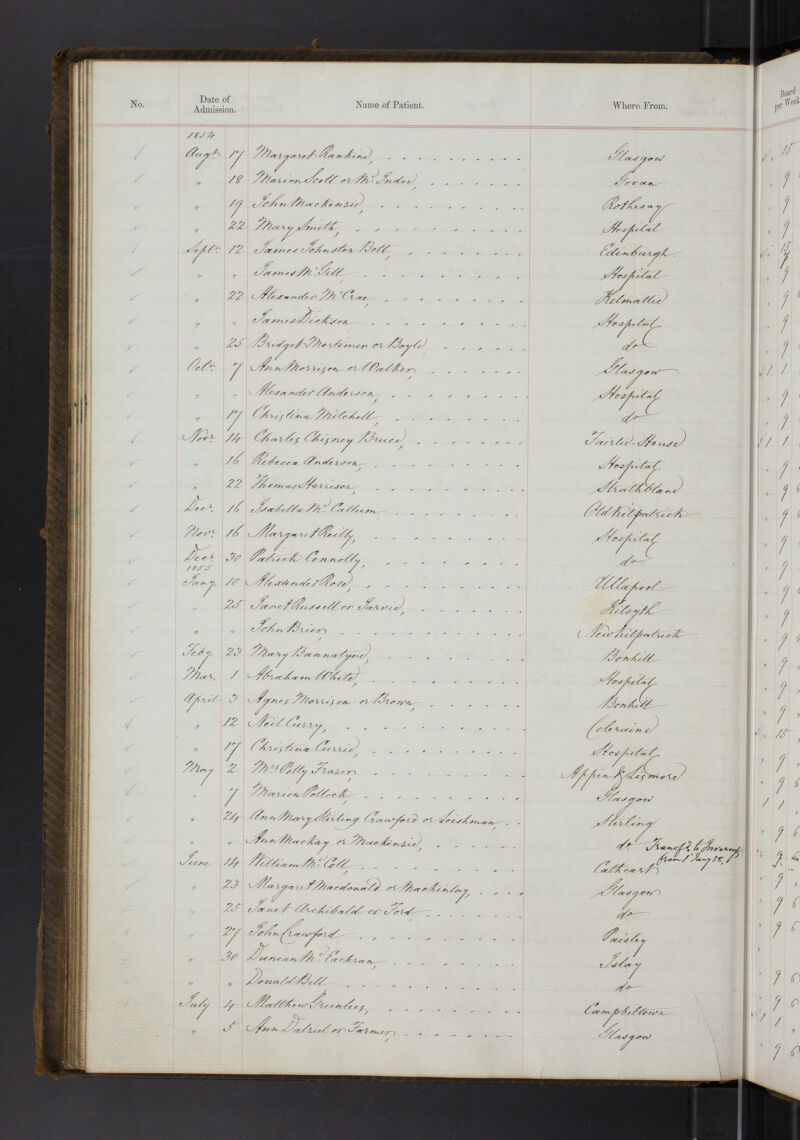 No. Date of Admission. Name of Patient. Where From. Board per Week
1854
Augt. 17 Margaret Rankine, Glasgow 15
" 18 Marion Scott or Mc Indoe, Govan 9
" 19 John Mackenzie, Rothesay 9
" 22 Mary Smith, Hospital 9
Septr. 12 James Johnston Bolt, Edinburgh. 15
" " James Mc Gill, Hospital 9
" 22 Alexander Mc Crae, Kilmallie 9
" " James Dickson Hospital 9
" 25 Bridget Mortimer or Boyle, do 9
Octr. 7 Ann Morrison or Walker, Glasgow 1 1
" " Alexander Anderson, Hospital 9
" 17 Christina Mitchell, do 9
Novr. 14 Charles Chisney Bruce, Fairlie House 1 1
" 16 Rebecca Anderson, Hospital 9
" 22 Thomas Harrison, Strathblane 9 6
Decr. 16 Isabella Mc Callum, Old Kilpatrick 9 6
Novr. 16 Margaret Reilly, Hospital 9
Decr. 30 Patrick Connolly, do 9
1855
Jany. 10 Alexander Rose, Ullapool 9 6
" 25 Janet Russell or Jarvie, Kilsyth 9
" " John Brier, New Kilpatrick 9 6
Feby. 23 Mary Bannatyne, Bonhill 9
Mar. 1 Abraham White, Hospital 9
April 3 Agnes Morrison or Brown, Bonhill 9
" 12 Neil Curry, Coleraine 15
" 17 Christina Currie, Hospital 9
May 2 Mrs Polly Fraser, Appin & Lismore 9 6
" 7 Marion Pollock, Glasgow 1 1
" 24 Ann Mary Stirling Crawford or Leishman, Stirling 9 6
" " Ann Mackay or Mackenzie, do Transfd. to Inverness from 1 Jany 58, 9
June 14 William Mc Coll, Cathcart 9
" 23 Margaret Macdonald or Mackinlay, Glasgow 9 6
" 25 Janet Archibald or Ford do 9 6
" 27 John Crawford Paisley
" 30 Duncan Mc Eachran, Islay 9 6
" " Donald Bell do 9 6
July 4 Matthew Greenlees, Campbeltown 1 1
" 5 Ann Dalziel or Farmer, Glasgow 9 6